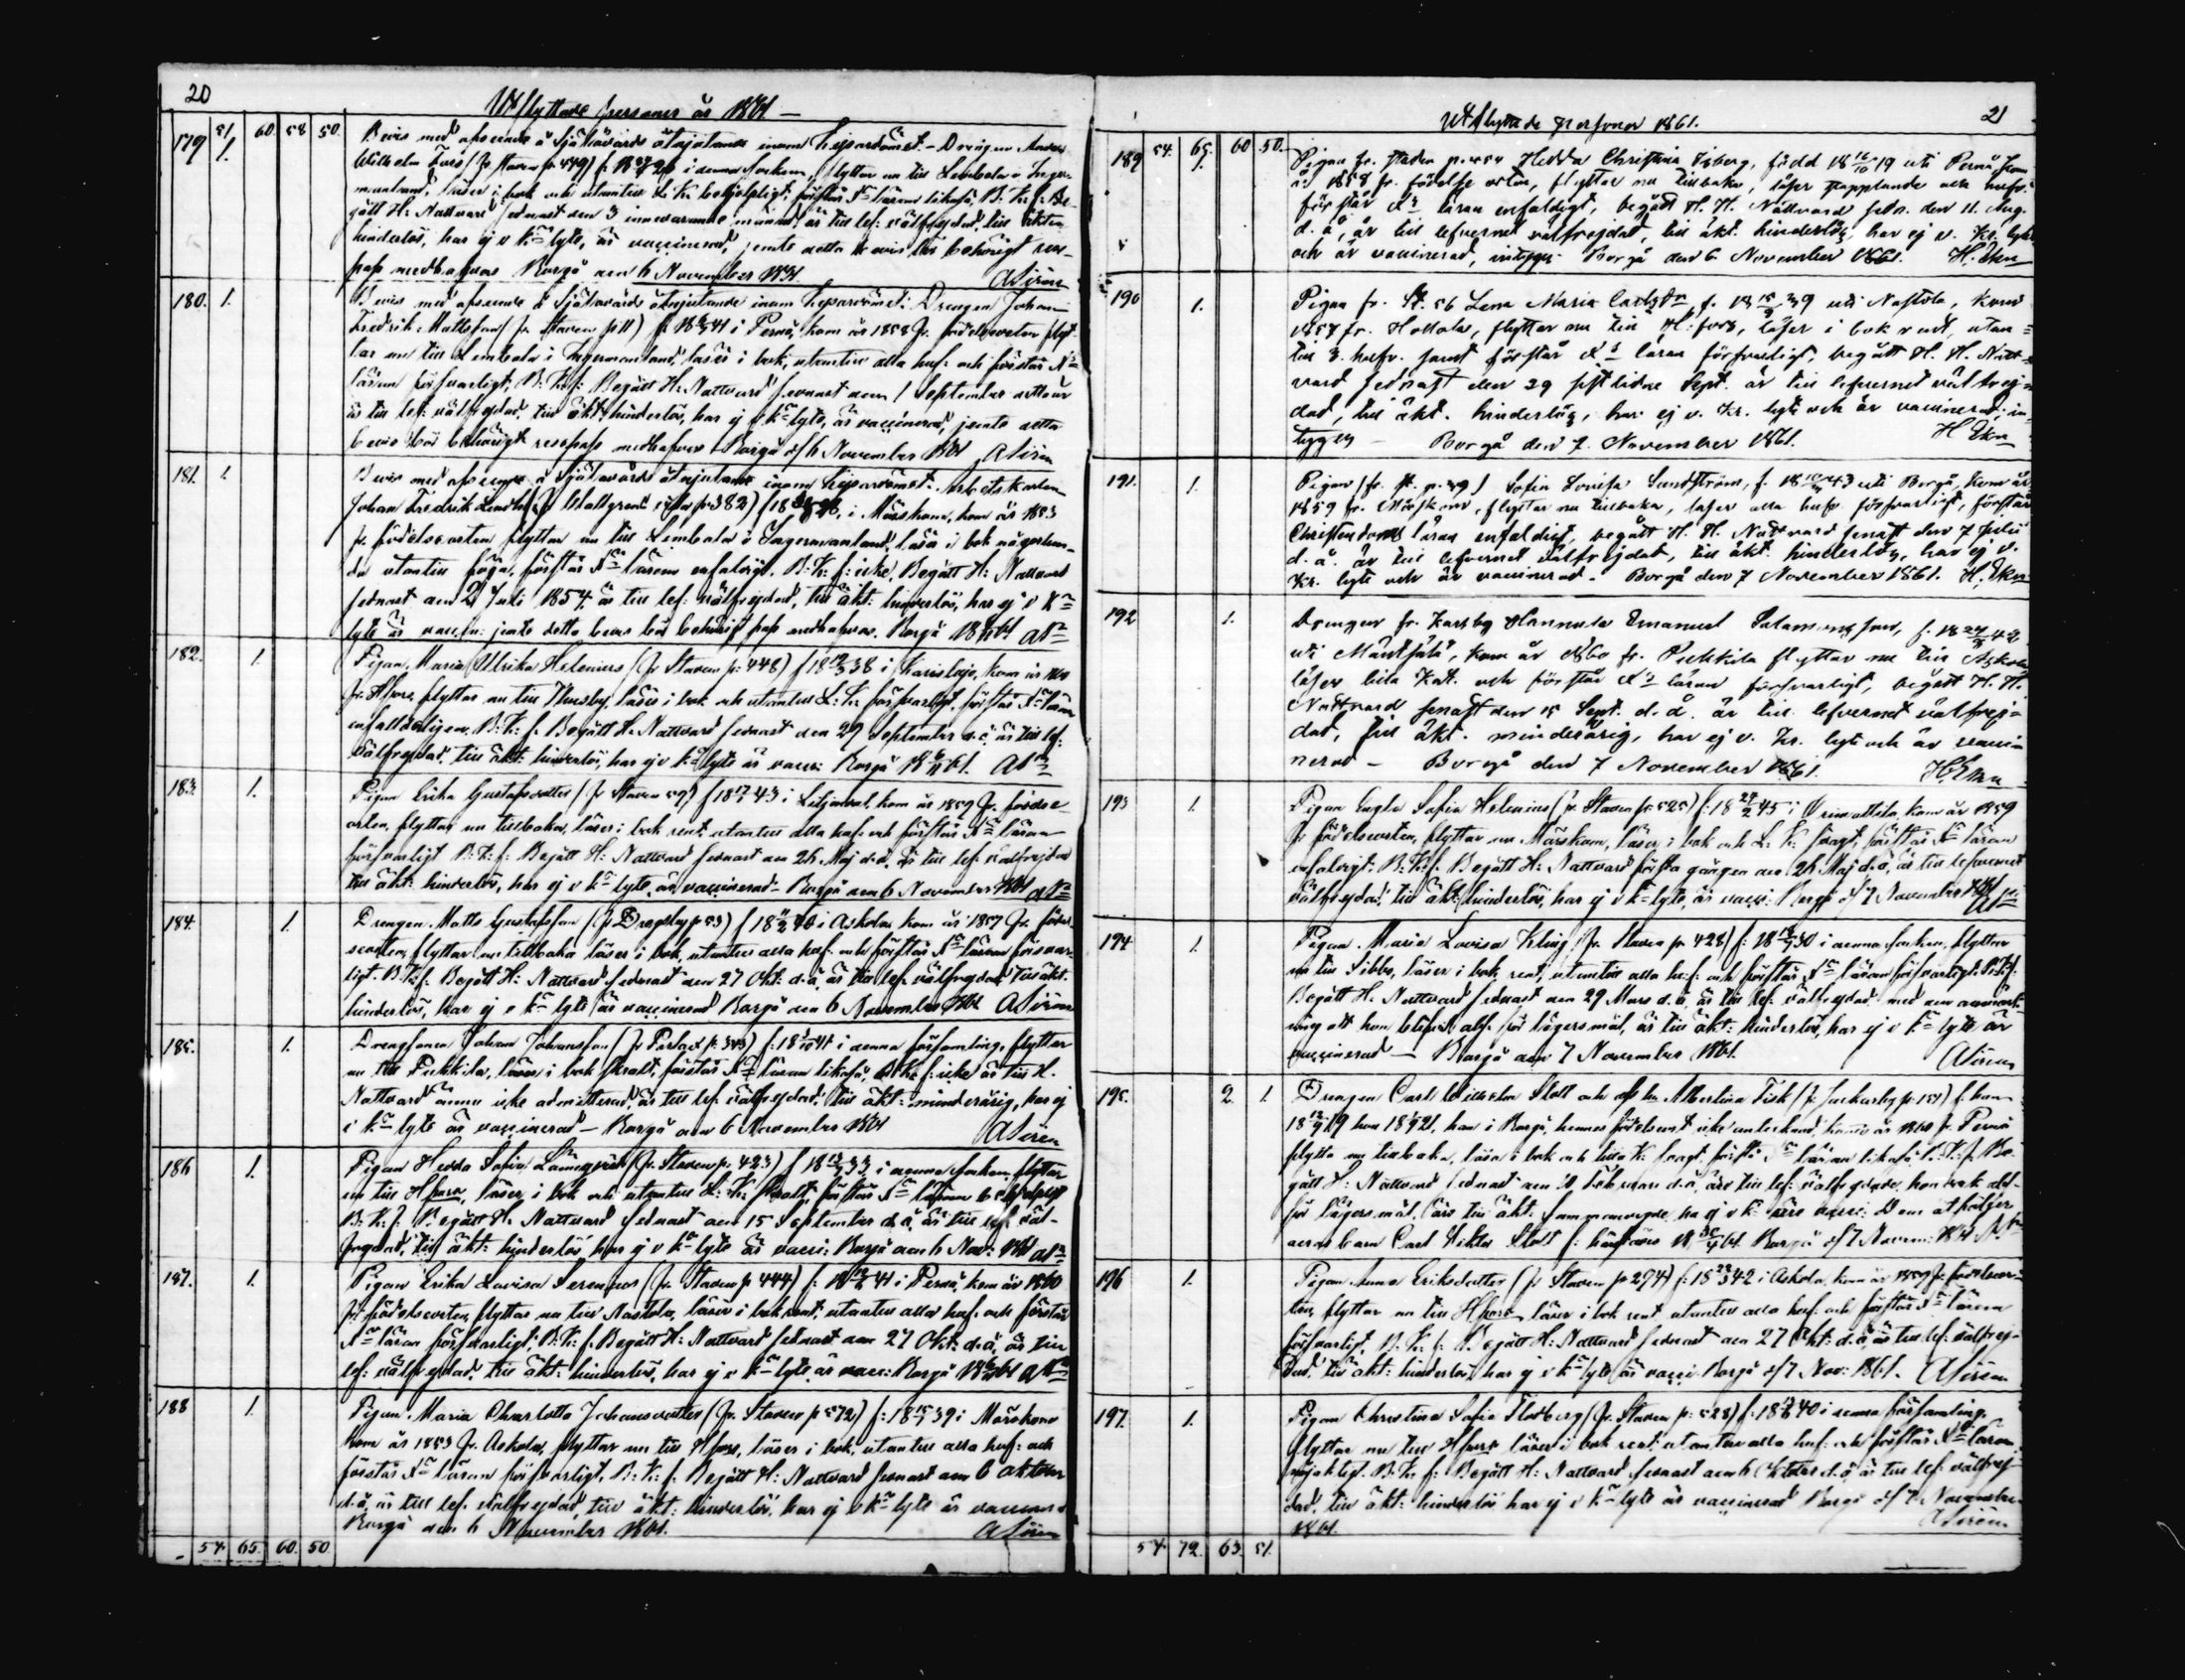 20
Utflyttade personer år 1861 —
51. 60. 58 50.
179 1. Bevis med afseende å Själavårds åtnjutande inom Ingermanland. - Drengen Anders
Wilhelm (fr Staden p. 449) i denna socken, flyttar nu till Lembala i Inger-
manland, läser i bok och utantill L. K. förstår likaså, B. K. f. Be-
gått H. Nattvard sednast den 3 innevarande månad, är till lef. välfrejdad, till äkten.
hinderlös, har ej v. k. lyte, är vaccinerad, jemte detta bevis bör behörigt res-
pass medhafvas Borgå den 6 November 1861. ASirén
180. 1. Bevis med afseende å Själavårds åtnjutande inom Drengen Johan
Fredrik Mattsson (fr Staden p 11) f. 41 i Perno, kom år 1858 fr. födelseorten flyt-
tar nu till Lembala i Ingermanland, läser i bok, utantill alla huf. och förstår Xs
läran försvarligt, B. K. f. Begått H. Nattvard sednast den 1 September detta år
är till lef. välfrejdad, till äkt. hinderlös, har ej v k lyte, är vaccinerad, jemte detta
bevis bör behörigt respass medhafvas Borgå d. 6 November 1861 ASirén
181. 1. Bevis med afseende å Själavårds åtnjutande inom
Johan Fredrik p 382) i Mörskom, kom år 1853
fr. födelseorten flyttar nu till Lembala i Ingermanland, läser i bok någorlun-
da utantill föga, förstår Xs läran enfaldigt. B. K. f. icke, Begått H. Nattvard
sednast den 2 Juli 1854, är till lef. välfrejdad, till äkt. hinderlös, har ej v K
lyte är vaccin. jemte detta bevis bör behörigt pass medhafvas. Borgå 18 61 ASn
182. 1. Pigan Maria Ulrika Helenius (fr Staden p. 448) f 38 i Karislojo, kom år
fr. Hfors, flyttar nu till Thusby, läser i bok och utantill L. K. försvarligt, förstår Xs läran
enfaldeligen, B. K. f. Begått H. Nattvard sednast den 29 September d.å. är till lef.
välfrejdad, till äkt. hinderlös, har ej v k lyte är vacc. Borgå 18 61. ASn
183. 1. Pigan Erika Gustafsdotter (fr Staden 59) f 18 43 i Liljendal, kom år 1859 fr. födelse-
orten, flyttar nu tillbaka, läser i bok rent, utantill alla huf. och förstår Xs läran
försvarligt B. K. f. Begått H. Nattvard sednast den 26 Maj d.å, är till lef. välfrejdad
till äkt. hinderlös, har ej v k lyte, är vaccinerad - Borgå den 6 November 1861 ASn
184. 1. Drengen Matts Gustafsson (fr Dragsby p 53) f 18 40 i Askola, kom år 1857 fr. födel-
seorten, flyttar nu tillbaka läser i bok, utantill alla huf. och förstår Xs läran försvar-
ligt. B. K. f. Begått H. Nattvard sednast den 27 Okt. d.å, är till lef. välfrejdad till äkt.
hinderlös, har ej v k lyte är vaccinerad Borgå den 6 November 1861 ASirén
185. 1. Drengsonen Johan Johansson (fr p. 343) f. 18 41 i denna församling, flyttar
nu till Pukkila, läser i bok förstår Xs läran likaså, B. K. f. icke är till H.
Nattvard ännu icke admitterad, är till lef. välfrejdad, till äkt. minderårig, har ej
v k lyte är vaccinerad - Borgå den 6 November 1861 ASirén
186 1. Pigan Hedda Sofia (fr. Staden p. 423) f 18 33 i denna socken, flyttar
nu till Hfors, läser i bok och utantill L. K. förstår Xs läran
B. K. f. Begått H. Nattvard sednast den 15 September d.å, är till lef. väl-
frejdad, till äkt. hinderlös, har ej v k lyte är vacci. Borgå den 6 Nov. 1861 ASn
187. 1. Pigan Erika Lovisa Serenius (fr. Staden p 444) f. 18 41 i Pernå, kom år 1860
fr. födelseorten, flyttar nu till Nastola, läser i bok rent, utantill alla huf. och förstår
Xs läran försvarligt, B. K. f. Begått H. Nattvard sednast den 27 Okt. d.å, är till
lef. välfrejdad, till äkt. hinderlös, har ej v k lyte, är vacc. Borgå 18 61 ASn
188 1. Pigan Maria Charlotta Johansdotter (fr. Staden p 572) f. 18 39 i Mörskom
kom år 1853 fr. Askola, flyttar nu till Hfors, läser i bok, utantill alla huf. och
förstår Xs läran försvarligt, B. K. f. Begått H. Nattvard sednast den 6 Oktober
d.å, är till lef. välfrejdad, till äkt. hinderlös, har ej v k lyte är vaccinerad
Borgå den 6 November 1861. ASirén
54. 65. 60. 50
21
Utflyttade Personer 1861.
54. 65. 60 50.
189 1. Pigan fr. staden p. 454 Hedda Christina Isberg, född 18 16/10 19 uti Pernå, kom
år 1858 fr. födelse orten, flyttar nu tillbaka, läser stapplande och
förstår Xs läran enfaldigt, begått H. H. Nattvard sedn. den 11. Aug.
d. å, är till lefvernet välfrejdad, till äkt. hinderlös, har ej v. Kr. lyte
och är vaccinerad, intygar Borgå den 6 November 1861. H. Ekn
190 1. Pigan fr. St. 56 Lena Maria f. 18 39 uti Nastola, kom
1857 fr. Hollola, flyttar nu till H:fors, läser i bok rent, utan-
till 3. hufv. samt förstår Xs läran försvarligt, begått H. H. Natt-
vard sednast den 29 sistlidne Sept. är till lefvernet välfrej-
dad, till äkt. hinderlös, har ej v. Kr. lyte och är vaccinerad, in-
tygas - Borgå den 7. November 1861. H Ekn
191. 1. Pigan (fr. St. p. 49) Sofia Lovisa Sundström, f. 18 43 uti Borgå, kom år
1859 fr. Mörskom, flyttar nu tillbaka, läser alla hufv. försvarligt, förstår
Christendoms läran enfaldigt, begått H. H. Nattvard senast den 7 Julii
d. å. är till lefvernet välfrejdad, till äkt. hinderlös, har ej v.
Kr. lyte och är vaccinerad. Borgå den 7 November 1861. H. Ekn
192 1. Drengen fr. Karsby Hannula Emanuel Salamonsson, f. 18 42
uti Mäntsälä, kom år 1860 fr. Pukkila flyttar nu till Askola
läser lilla Kat. och förstår Xs läran försvarligt, begått H. H.
Nattvard senast den 15 Sept. d. å. är till lefvernet välfrej-
dad, till äkt. minderårig, har ej v. Kr. lyte och är vacci-
nerad - Borgå den 7 November 1861. H. Ekn
193 1. Pigan Sofia Helenius (fr. Staden p. 525) f. 18 45 i Orimattila, kom år 1859
fr. födelseorten, flyttar nu Mörskom, läser i bok och L. K. svagt, förstår Xs läran
enfaldigt. B. K. f. Begått H. Nattvard första gången den 26 Maj d.å, är till lefvernet
välfrejdad, till äkt. hinderlös, har ej v k lyte, är vacci. Borgå d. 7 November 1861 ASn
194 1. Pigan Maria Lovisa Kling (fr. Staden p 428) f. 18 30 i denna socken, flyttar
nu till Sibbo, läser i bok rent, utantill alla huf. och förstår Xs läran försvarligt B. K. f.
Begått H. Nattvard sednast den 29 Mars d.å, är till lef. välfrejdad med den anmärk-
ning att hon blifvit abs. för lägersmål, är till äkt. hinderlös, har ej v k lyte är
vaccinerad - Borgå den 7 November 1861. ASirén
195. 2. 1. Drengen Carl Wilhelm Slott och dess hu Albertina Fisk (fr. p. 151) f. han
18 19 hon 18 21, han i Borgå, hennes födelseort icke antecknad, kommo år 1860 fr. Pernå
flytta nu tillbaka, läsa i bok och lilla K. svagt, förstå Xs läran likaså, B. K. f. Be-
gått H. Nattvard sednast den Februari d.å, äro till lef. välfrejdade, hon dock abs.
för lägersmål, äro till äkt. sammanvigde, ha ej v k lyte äro vacci. Dem åtföljer
deras barn Carl Viktor Slott f. härstädes 18 61. Borgå d. 7 Novem. 1861. ASn
196 1. Pigan Anna Eriksdotter (fr Staden p 274) f. 18 42 i Askola, kom år 1859 fr. födelseor-
ten, flyttar nu till Hfors, läser i bok rent utantill alla huf. och förstår Xs läran
försvarligt, B. K. f. Begått H. Nattvard sednast den 27 Okt. d.å, är till lef. välfrej-
dad, till äkt. hinderlös, har ej v k lyte är vacci. Borgå d. 7 Nov. 1861. ASirén
197. 1. Pigan Christina Sofia Flodberg (fr. Staden p. 528) f. 18 40 i denna församling,
flyttar nu till Hfors läser i bok rent, utantill alla huf. och förstår Xs läran
nöjaktigt. B. K. f. Begått H. Nattvard sednast den 6 Oktober d.å, är till lef. välfrej-
dad, till äkt. hinderlös har ej v k lyte är vaccinerad Borgå d. 7 November
1861. ASirén
54. 72. 63. 51.